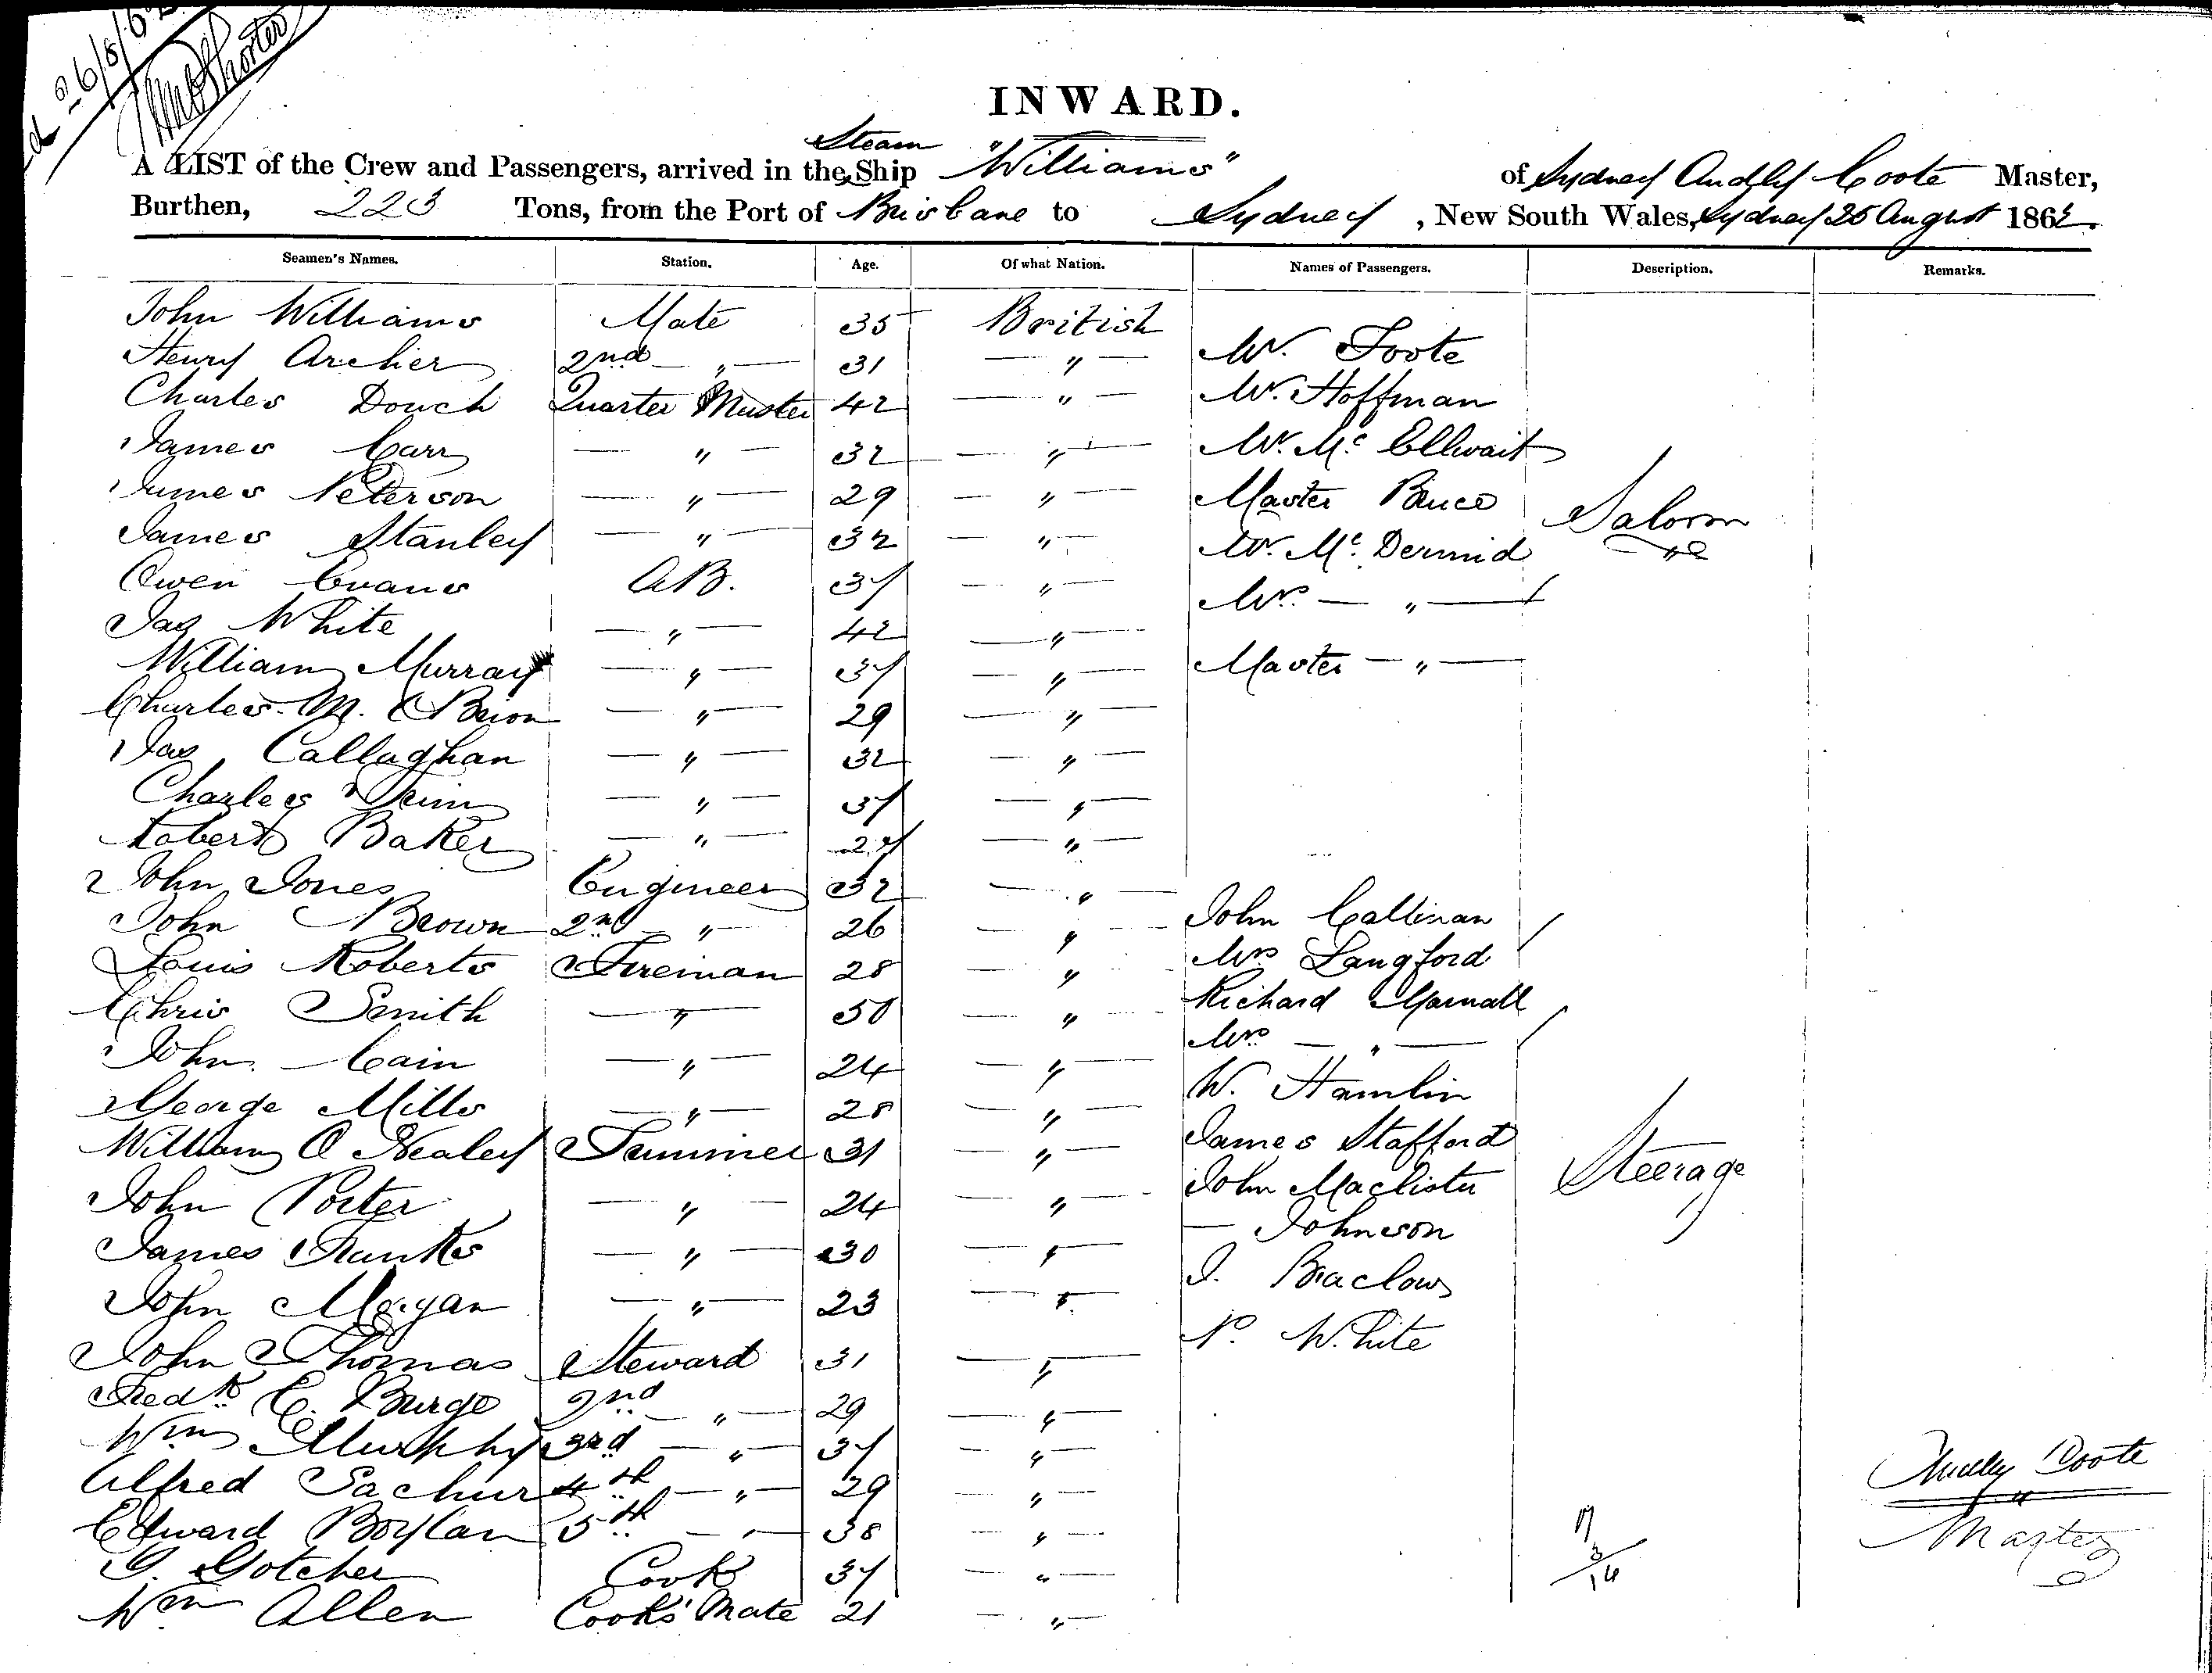 26/8/62
INWARD.
A LIST of the Crew and Passengers, arrived in the Steam Ship "Williams" of Sydney Audley Coote Master,
Burthen, 223 Tons, from the Port of Brisbane to Sydney, New South Wales, Sydney 25 August 1862.
Seamen's Names. Station. Age. Of what Nation. Names of Passengers. Description. Remarks.
John Williams Mate 35 British
Henry Archer 2nd — " — 31 — " — Mr. Foote
Charles Douch Quarter Master 42 — " — Mr. Hoffman
James Carr — " — 32 — " — Mr. Mc Ellwait
James Peterson — " — 29 — " — Master Bruce Saloon
James Stanley — " — 32 — " — Mr. Mc Dermid
Owen Evans AB. 37 — " — Mrs. — " —
Jas White — " — 42 — " —
William Murray — " — 37 — " — Master — " —
Charles M. OBrion — " — 29 — " —
Jas Callaghan — " — 32 — " —
Charles — " — 37 — " —
Robert Baker — " — 27 — " —
John Jones Engineer 32 — " —
John Brown 2nd — " — 26 — " — John Callinan
Louis Roberts Fireman 28 — " — Mrs Langford
Chris Smith — " — 30 — " — Richard Marnall
Mrs — " —
John Cain — " — 24 — " — W. Hamlin
George Mills — " — 28 — " —
William O Nealey Trimmer 31 — " — James Stafford Steerage
John Porter — " — 24 — " — John Maclister
James Franks — " — 30 — " — — Johnson
John Morgan — " — 23 — " — J. Braclow
P. White
John Thomas Steward 31 — " —
Fredk C. Burge 2nd — " — 29 — " —
Wm Murphy 3rd — " — 37 — " —
Alfred Sachur 4th — " — 29 — " — Audley Coote
Edward Boylan 5th — " — 38 — " — 17 Master
G. Gotcher Cook 37 — " — 3/16
Wm Allen Cook's Mate 21 — " —